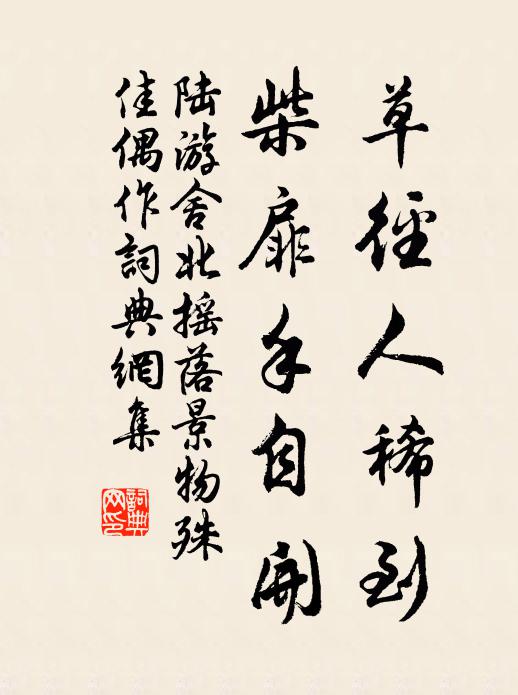 草徑人稀到
柴扉手自開
陆游舍北摇落景物殊
佳偶作詞典網集
詞典
网印